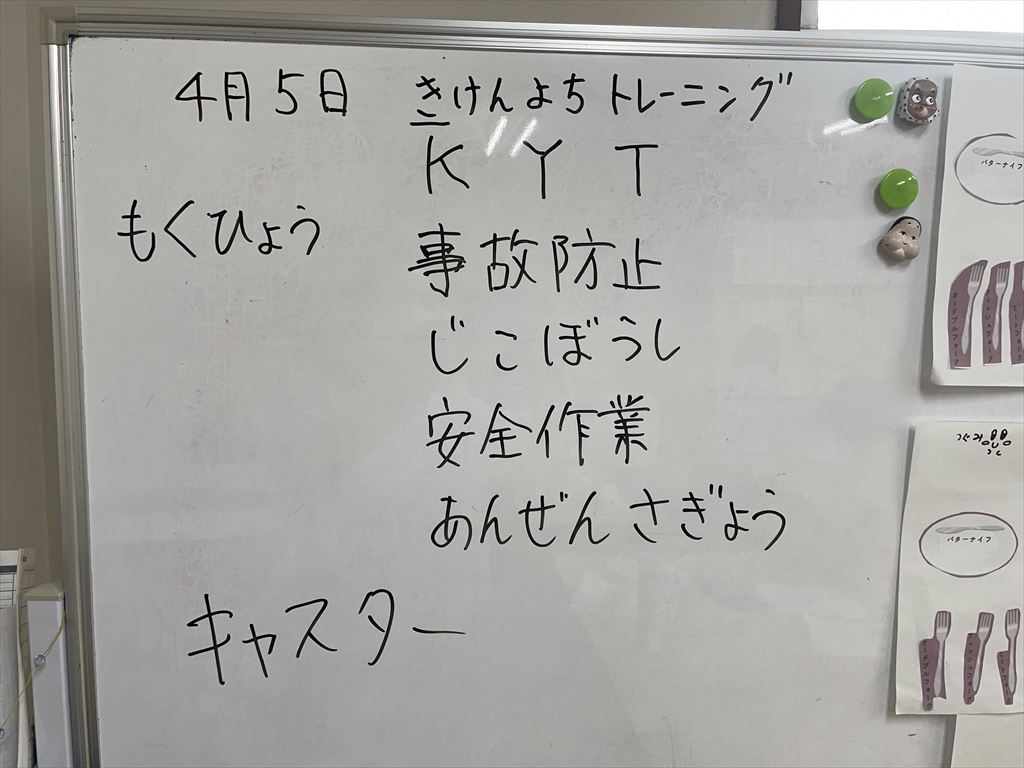 4月5日 きけんよちトレーニング
KYT
もくひょう
事故防止
じこぼうし
安全作業
あんぜんさぎょう
キャスター
バターナイフ
オードブルフォーク
バターナイフ